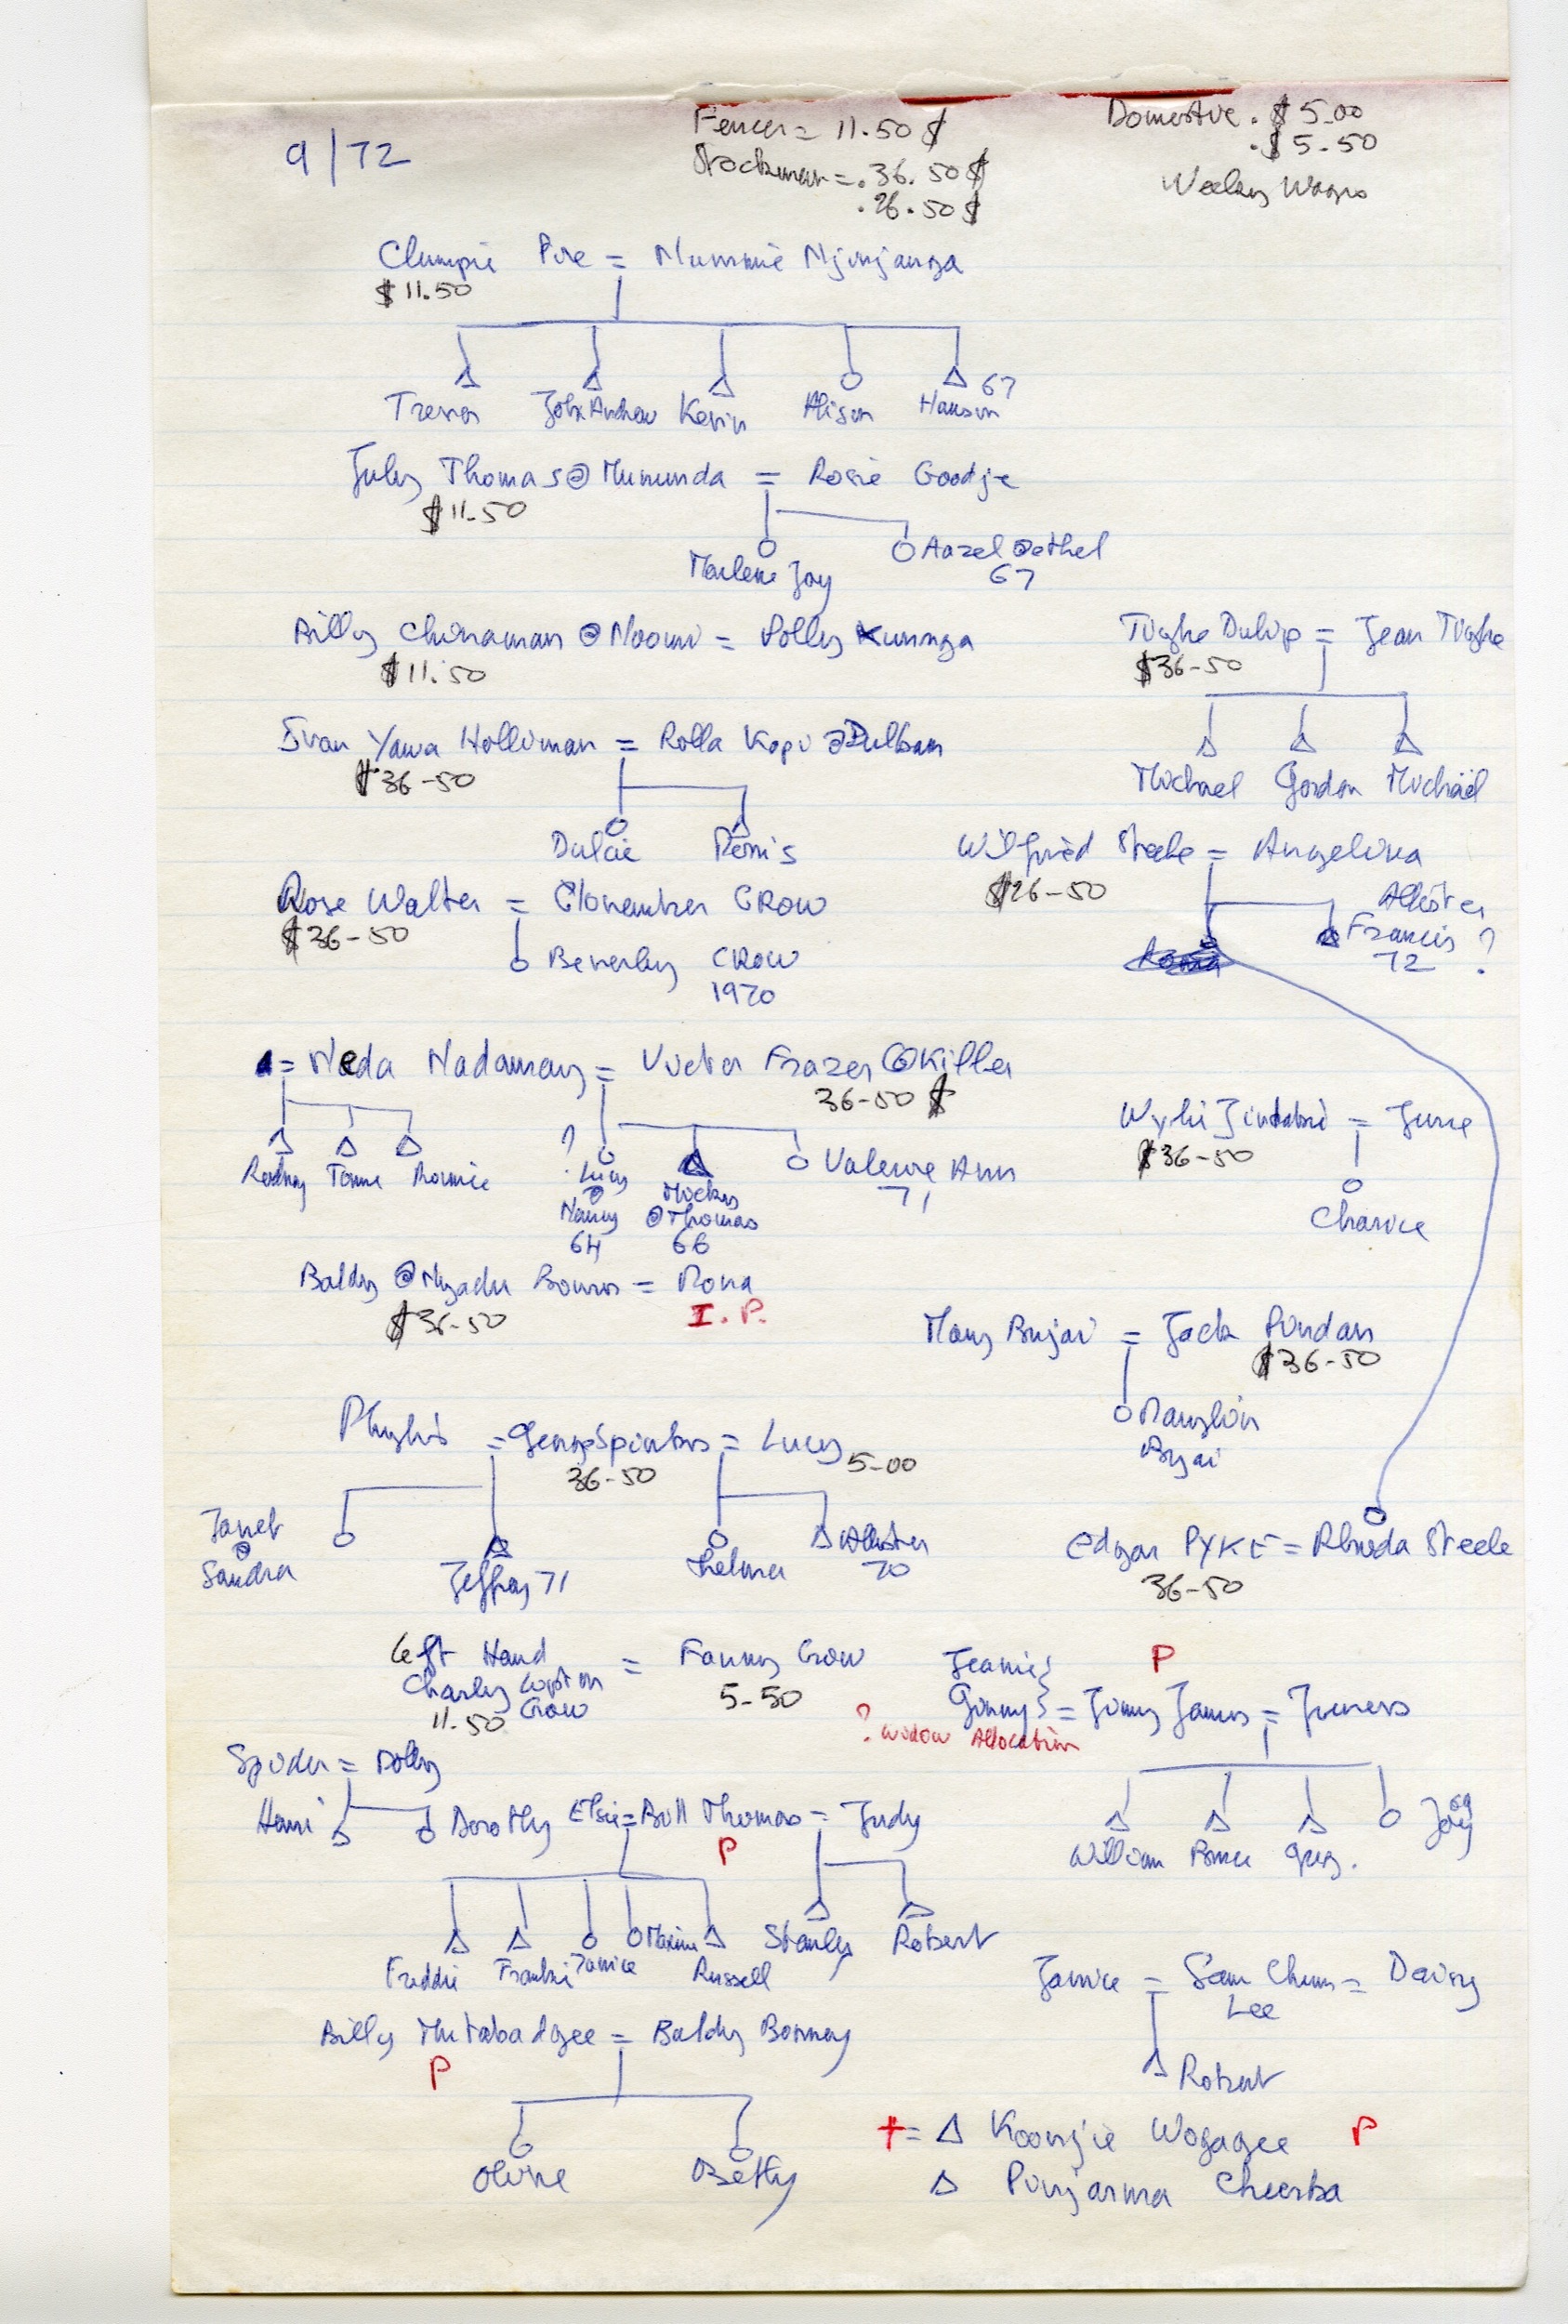 9/72
Fencer = 11.50 $
Stockman = . 36.50 $
. 26.50 $
Domestive . $ 5-00
. $ 5-50
Weekly Wages
Clumpie Pire = Mummie Njinjanga
$ 11.50
Trevor John Andrew Kevin Alison Hanson 67
July Thomas @ Mununda = Rosie Goodje
$ 11-50
Marlene Joy
Aazel @ ethel
67
Billy Chinaman @ Noomi = Polly Kununga
$ 11.50
Tighe Dulip = Jean Tighe
$36-50
Michael Gordon Michäel
Ivan Yawa Holliman = Rolla Kopi @ Dulbam
$ 36-50
Dulcie Denis
Wilfried Steele = Angelina
$26-50
Allister
Francis ?
72
Rose Walter = Clonember CROW
$36-50
Beverley CROW
1970
= Neda Nadamay = Victor Frazer @ Killer
36-50 $
Rodney Tommie Ronnie
? Lucy
@
Nancy
64
Mickey
@ Thomas
66
Valerie Ann
71
Wylie Jindabri = June
$36-50
Charice
Baldy @ Nyadu Bonus = Rona
$ 36-50
I. P.
Mary Bujai = Jack Pindan
$36-50
Marylin
Byai
Phylis = George Spinks = Lucy
36-50
5-00
Janet
@
Sandra
Jeffrey 71
Thelma
Allister
70
Edgar PYKE = Rhoda Steele
36-50
Left Hand
Charley
Crow
11-50
= Fanny Crow
5-50
P
Jeanie }
Ginny } = Jimmy James = Juness
? widow Allocation
William Bruce Greg. Joy 69
Spider = Dolly
Dorothy
Elsie = Bill Thomas = Judy
P
Freddie Frankie Janice Maxine Russell
Stanley Robert
Janice = Sam Chum = Daisy
Lee
Robert
Billy Mutabadgee = Baldy Bonney
P
Olive Betty
+ = Δ Koonjie Wogagee P
Δ Punjarma Cheerba